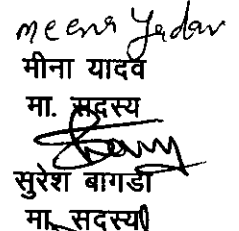 meena Yadav
मीना यादव
मा. सदस्य
सुरेश बागडी
मा. सदस्य